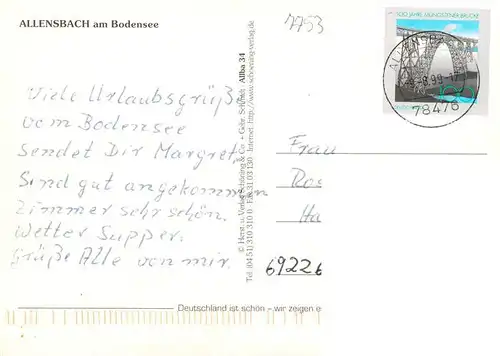 ALLENSBACH am Bodensee
7753
100 JAHRE MÜNGSTENER BRÜCKE
ALLENSBACH
-8.99-17
78476
Viele Urlaubsgrüße
vom Bodensee
sendet Dir Margret.
Sind gut angekommen
Zimmer sehr schön.
Wetter Supper.
Grüße Alle von mir.
© Herst. u. Verlag Schöning & Co. + Gebr. Schmidt Allba 34
Tel. (04 51) 310 310 Fax 31 03 130 Internet http://www.schoening-verlag.de
Frau
Ros
Ha
69226
Deutschland ist schön – wir zeigen e